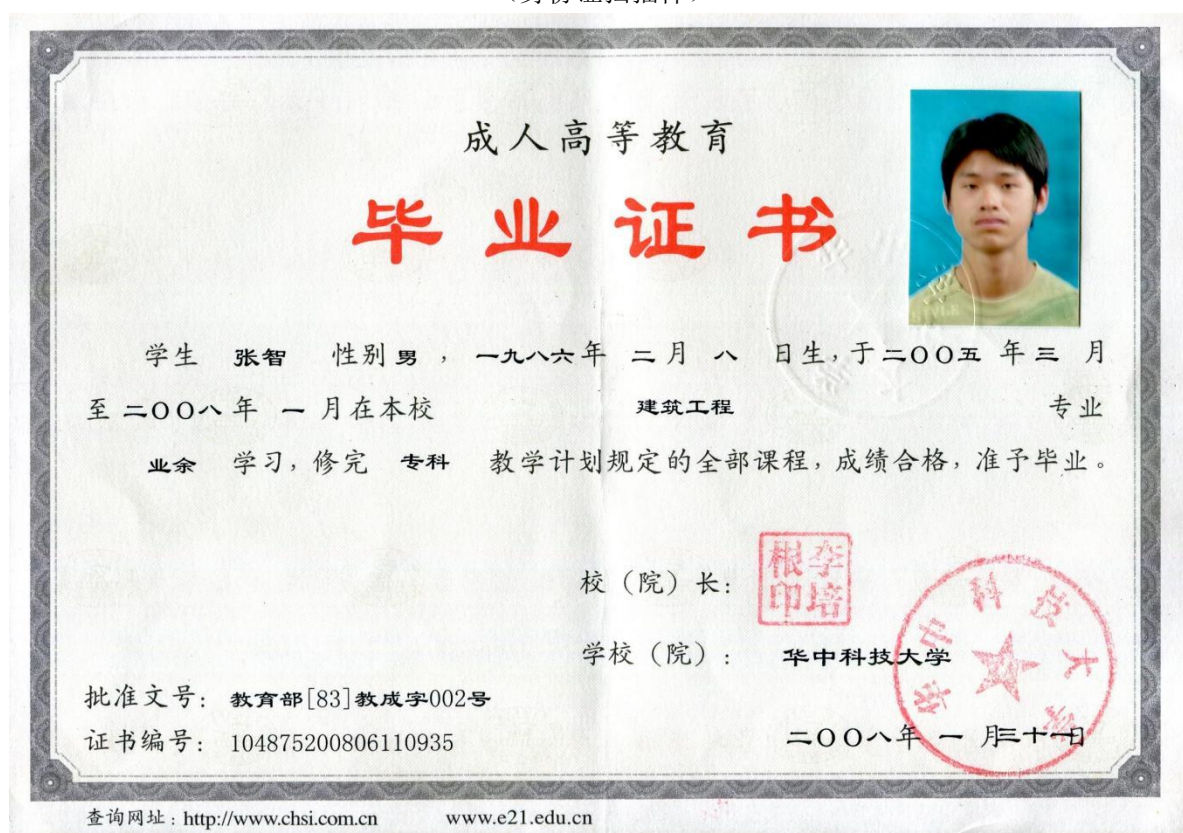 (身份证扫描件)
成人高等教育
毕业证书
学生 张智 性别 男 ， 一九八六 年 二 月 八 日生，于 二〇〇五 年 三 月
至 二〇〇八 年 一 月在本校 建筑工程 专业
业余 学习，修完 专科 教学计划规定的全部课程，成绩合格，准予毕业。
李培根印
校（院）长：
华中科技大学
学校（院）： 华中科技大学
批准文号： 教育部[83]教成字002号
证书编号： 104875200806110935
二〇〇八年 一 月三十一日
查询网址：http://www.chsi.com.cn www.e21.edu.cn